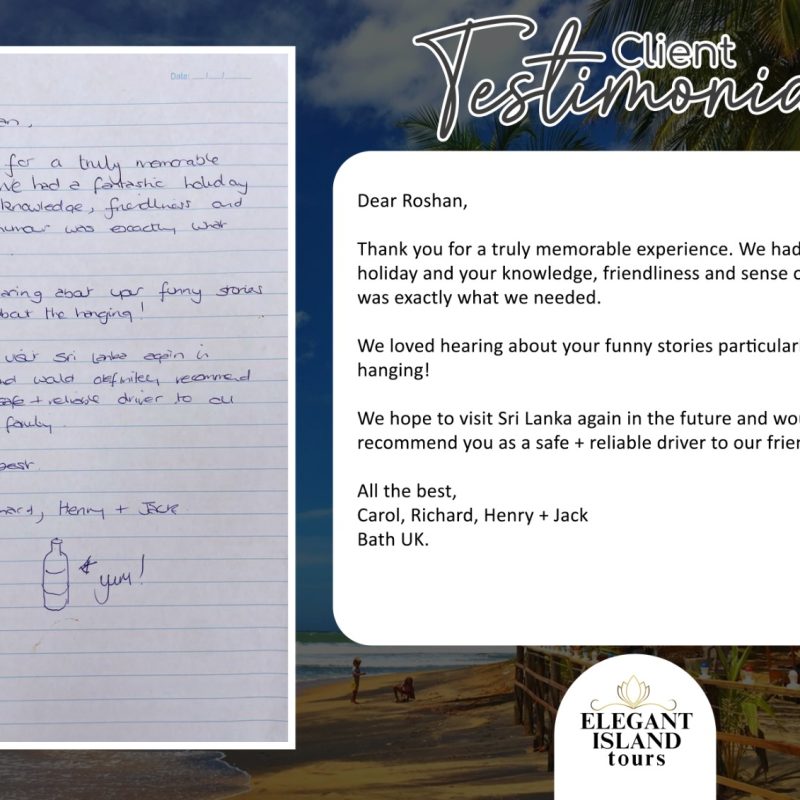 Date: __/__/____
for a truly memorable
we had a fantastic holiday
knowledge, friendliness and
humour was exactly what
aring about your funny stories
bout the hanging!
visit Sri Lanka again in
nd would definitely recommend
safe + reliable driver to our
family.
best
hard, Henry + Jack
yum!
Client
Testimonia
Dear Roshan,
Thank you for a truly memorable experience. We had
holiday and your knowledge, friendliness and sense o
was exactly what we needed.
We loved hearing about your funny stories particularl
hanging!
We hope to visit Sri Lanka again in the future and wou
recommend you as a safe + reliable driver to our frien
All the best,
Carol, Richard, Henry + Jack
Bath UK.
ELEGANT
ISLAND
tours